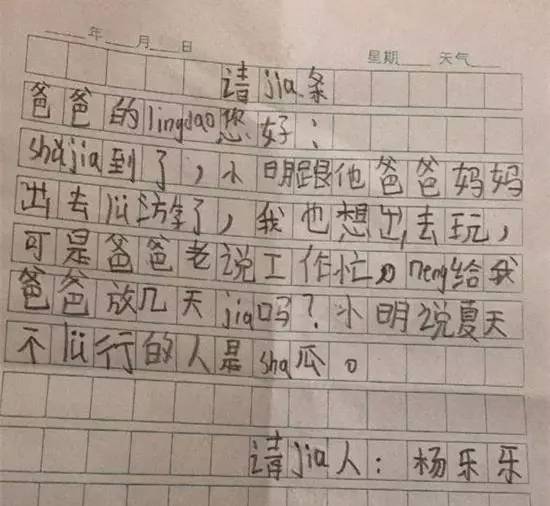 年 月 日 星期 天气
请jia条
爸爸的lingdao您好：
shǔjia到了，小明跟他爸爸妈妈
出去lǚ游了，我也想出去玩，
可是爸爸老说工作忙。neng给我
爸爸放几天jia吗？小明说夏天
不lǚ行的人是sha瓜。
请jia人：杨乐乐